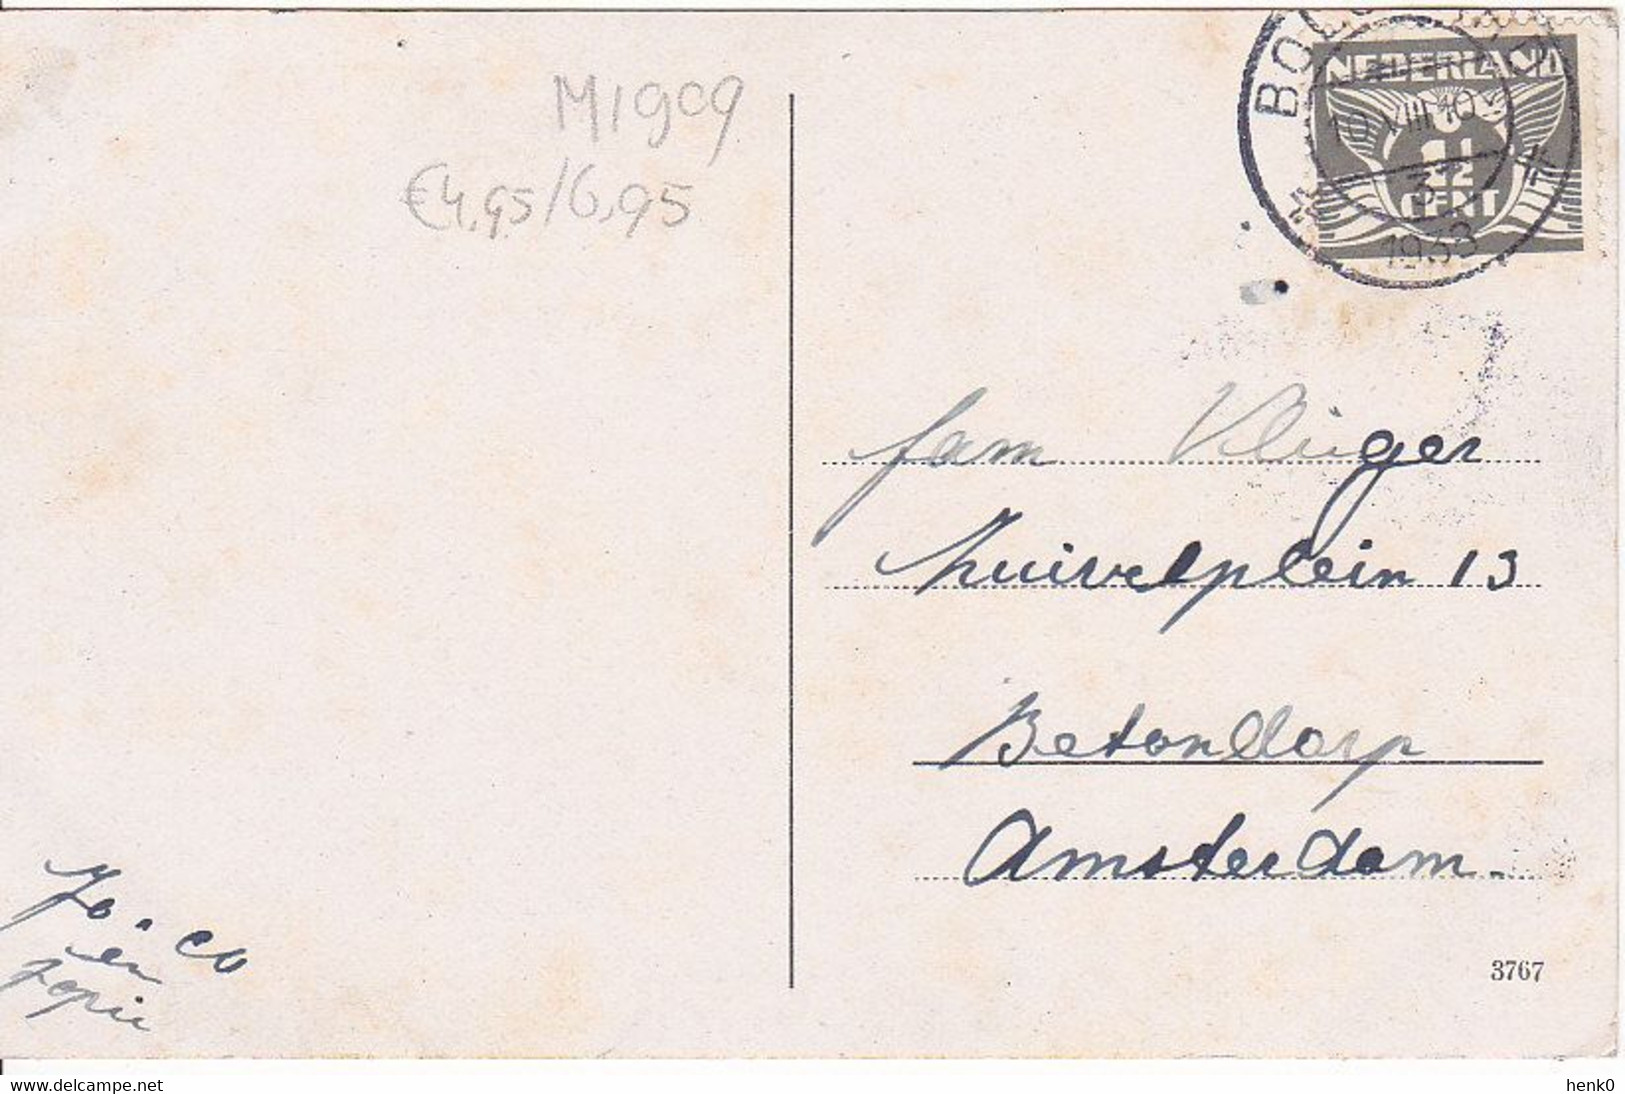 M1909
€4,95/6,95
NEDERLAND
10 VIII 10
1½
CENT
1933
fam Vlieger
Zuivelplein 13
Betondorp
Amsterdam.
Jo. Co
en
Jopie
3767
www.delcampe.net
henk0